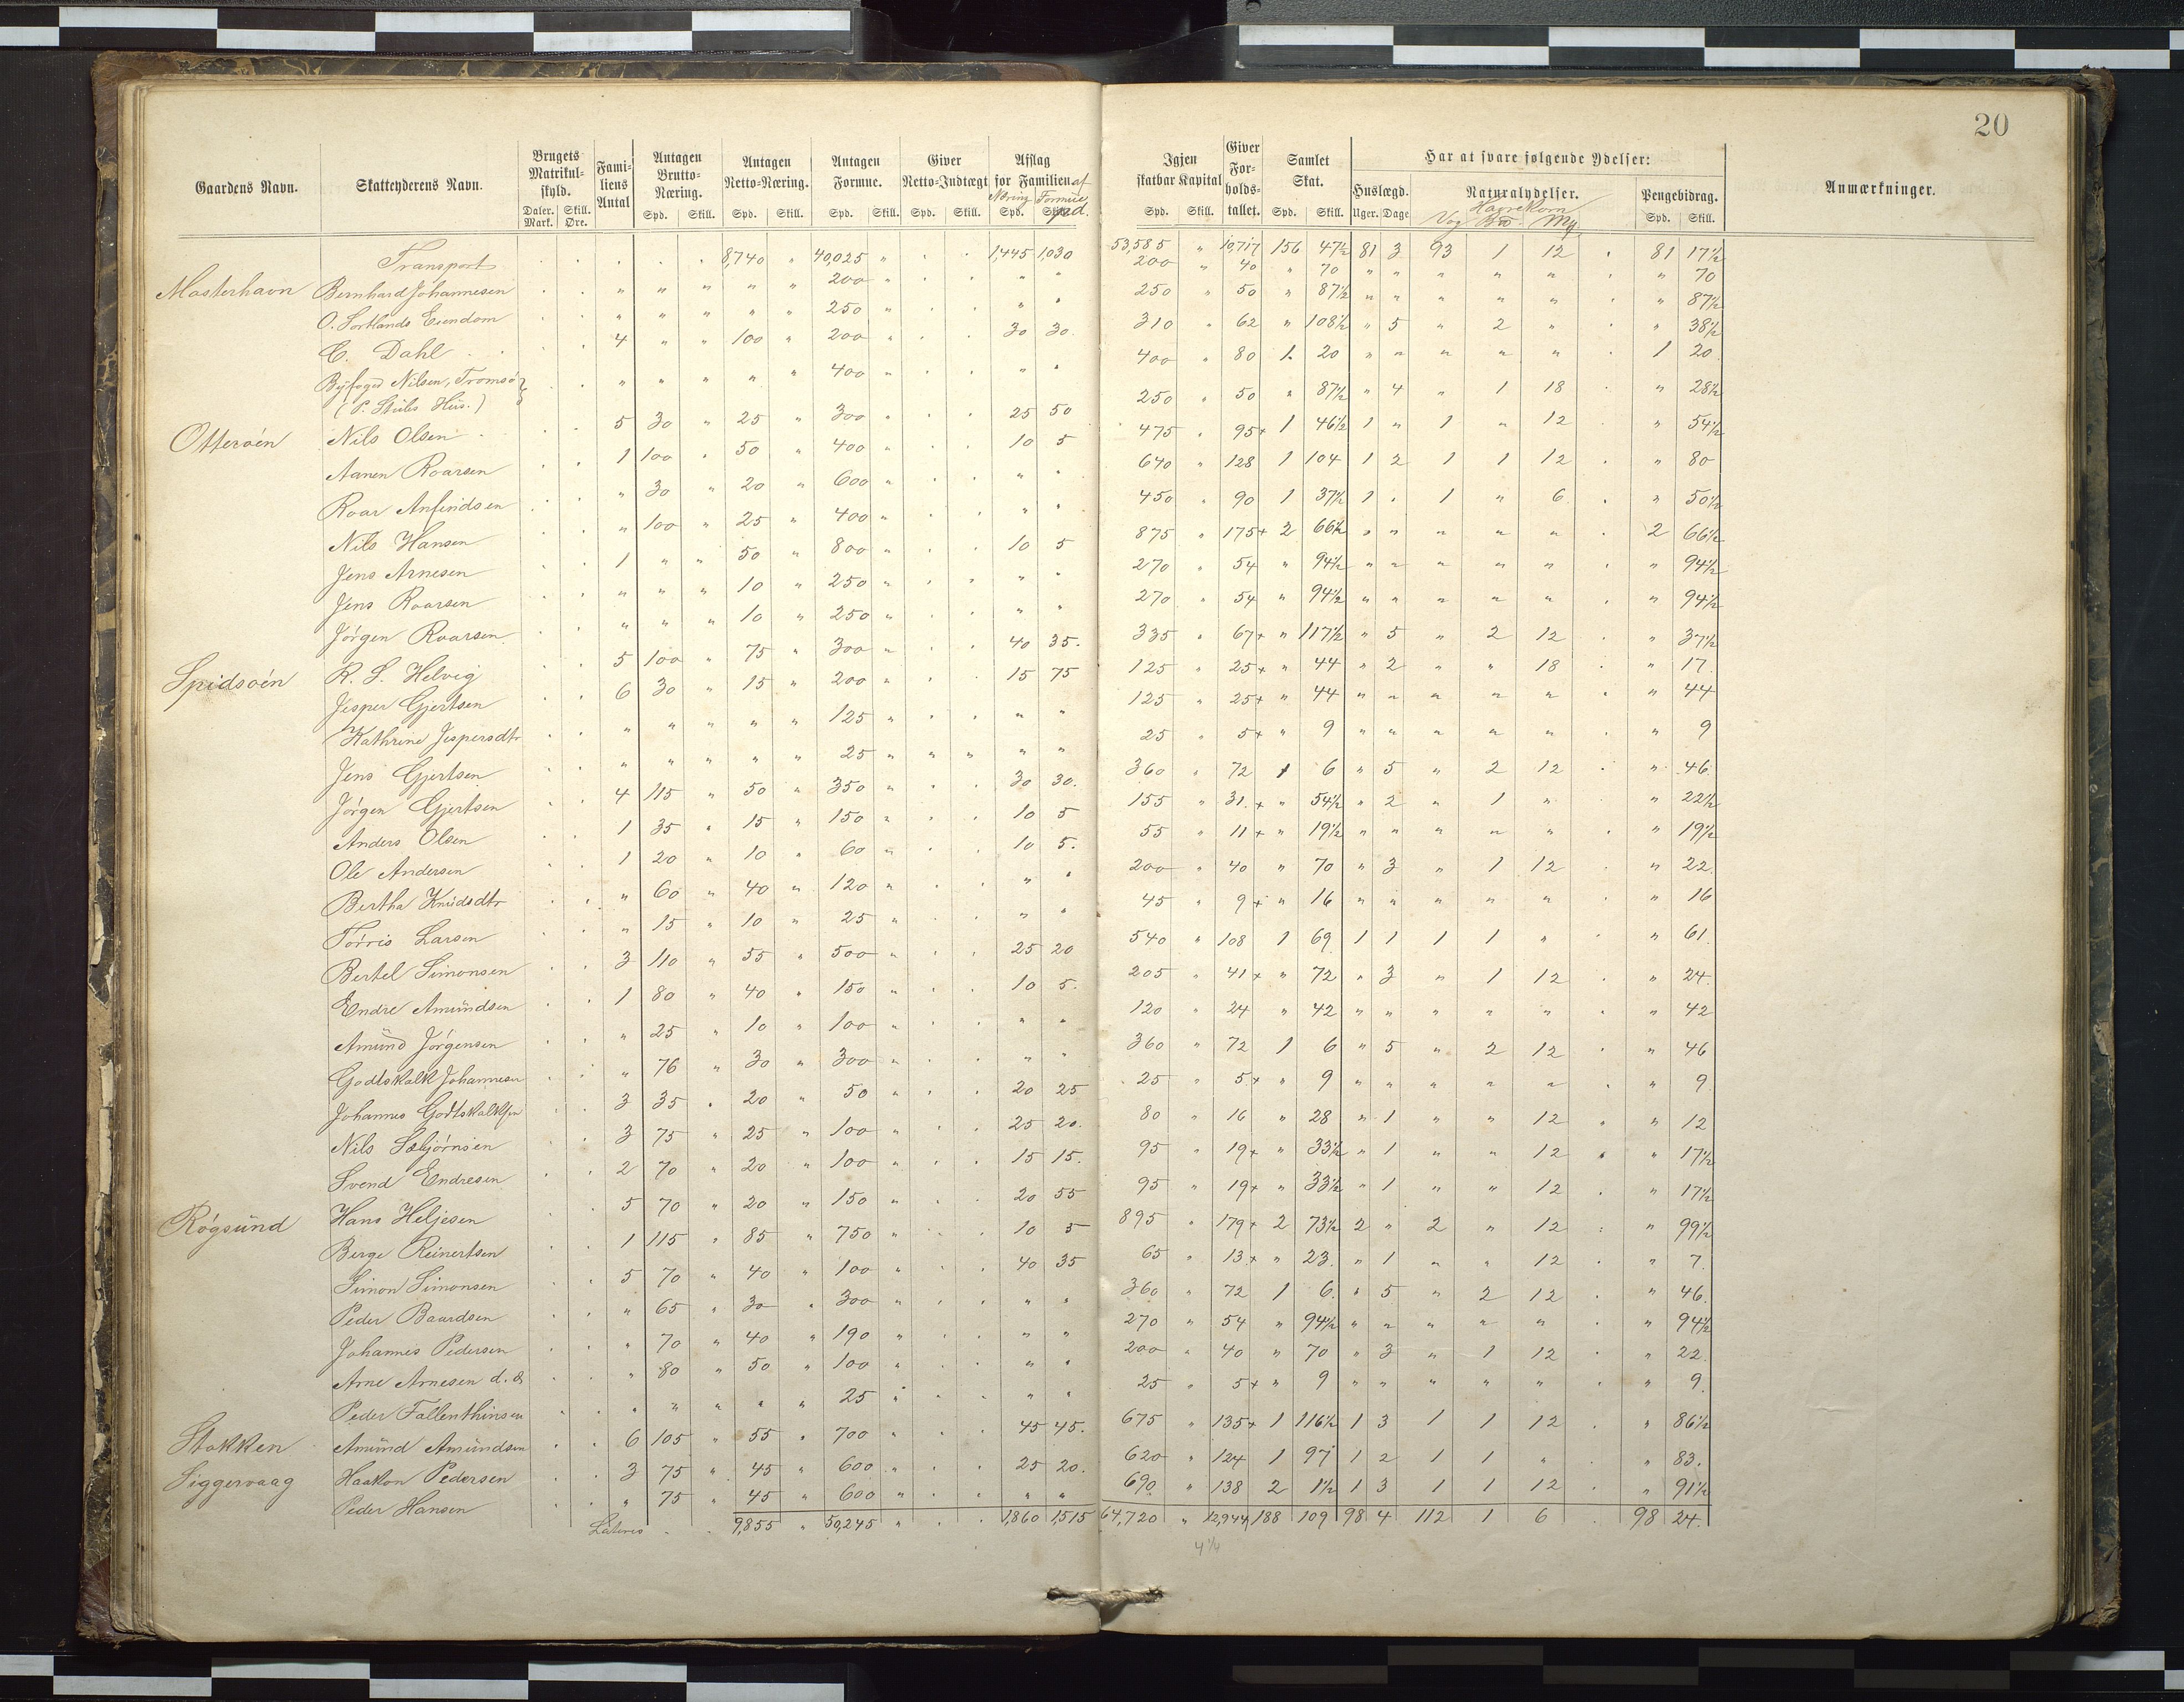 20
Gaardens Navn. Skatteyderens Navn. Brugets Matrikulskyld. Daler. Mark. Skill. Øre. Familiens Antal Antagen Brutto-Næring. Spd. Skill. Antagen Netto-Næring. Spd. Skill. Antagen Formue. Spd. Skill. Giver Netto-Indtægt Spd. Skill. Afslag for Familien af Næring Formue Spd. Spd. Igjen skatbar Kapital Spd. Skill. Giver Forholdstallet. Samlet Skat. Spd. Skill. Har at svare følgende Ydelser: Huslægd. Uger. Dage Naturalydelser. Havrekorn Vog Mk Pengebidrag. Spd. Skill. Anmærkninger.
Transport 8,740 " 40,025 " 1,445 1,030 53,585 " 10,717 156 47½ 81 3 93 1 12 81 17½
Mosterhavn Bernhard Johannesen " " " " " 200 " " " 200 " 40 " 70 " " " " " " 70
O. Sortlands Eiendom " " " " " 250 " " " 250 " 50 " 87½ " " " " " " 87½
C. Dahl 4 " " 100 " 200 " 30 30 310 " 62 " 108½ " 5 " 2 " " 38½
Byfoged Nilsen, Tromsø
(P. Stubs Hus.) " " " " " 400 " " " 400 " 80 1 20 " " " " " 1 20
Otterøen Nils Olsen 5 30 " 25 " 300 " 25 50 250 " 50 " 87½ " 4 " 1 18 " 28½
Aanen Roarsen 1 100 " 50 " 400 " 10 5 475 " 95+ 1 46½ 1 " 1 " 12 " 54½
Roar Anfindsen " 30 " 20 " 600 " " " 640 " 128 1 104 1 2 1 1 12 " 80
Nils Hansen " 100 " 25 " 400 " " " 450 " 90 1 37½ 1 " 1 " 6 " 50½
Jens Arnesen 1 " " 50 " 800 " 10 5 875 " 175+ 2 66½ " " " " " 2 66½
Jens Roarsen " " " 10 " 250 " " " 270 " 54 " 94½ " " " " " " 94½
Jørgen Roarsen " " " 10 " 250 " " " 270 " 54 " 94½ " " " " " " 94½
Spidsøen R. S. Helvig 5 100 " 75 " 300 " 40 35 335 " 67+ " 117½ " 5 " 2 12 " 37½
Jesper Gjertsen 6 30 " 15 " 200 " 15 75 125 " 25+ " 44 " 2 " " 18 " 17
Kathrine Jespersdtr " " " " " 125 " " " 125 " 25+ " 44 " " " " " " 44
Jens Gjertsen " " " " " 25 " " " " " 25 " 5+ " 9 " " " " " " 9
Jørgen Gjertsen 4 115 " 50 " 350 " 30 30 360 " 72 1 6 " 5 " 2 12 " 46
Anders Olsen 1 35 " 15 " 150 " 10 5 155 " 31+ " 54½ " 2 " 1 " " 22½
Ole Andersen 1 20 " 10 " 60 " 10 5 55 " 11+ " 19½ " " " " " " 19½
Bertha Knüdsdtr " 60 " 40 " 120 " " " 200 " 40 " 70 " 3 " 1 12 " 22
Torris Larsen " 15 " 10 " 25 " " " 45 " 9+ " 16 " " " " " " 16
Bertel Simonsen 3 110 " 55 " 500 " 25 20 540 " 108 1 69 1 1 1 1 " " 61
Endre Amündsen 1 80 " 40 " 150 " 10 5 205 " 41+ " 72 " 3 " 1 12 " 24
Amünd Jørgensen " 25 " 10 " 100 " " " 120 " 24 " 42 " " " " " " 42
Godtskalk Johannesen " 76 " 30 " 300 " " " 360 " 72 1 6 " 5 " 2 12 " 46
Johannes Godtskalksen 3 35 " 20 " 50 " 20 25 25 " 5+ " 9 " " " " " " 9
Nils Sæbjørnsen 3 75 " 25 " 100 " 25 20 80 " 16 " 28 " 1 " " 12 " 12
Svend Endresen 2 70 " 20 " 100 " 15 15 95 " 19+ " 33½ " 1 " " 12 " 17½
Røgsünd Hans Heljesen 5 70 " 20 " 150 " 20 55 95 " 19+ " 33½ " 1 " " 12 " 17½
Berge Reinertsen 1 115 " 85 " 750 " 10 5 895 " 179+ 2 73½ 2 " 2 " 12 " 99½
Simon Simonsen 5 70 " 40 " 100 " 40 35 65 " 13+ " 23 " 1 " " 12 " 7
Peder Baardsen " 65 " 30 " 300 " " " 360 " 72 1 6 " 5 " 2 12 " 46
Johannes Pedersen " 70 " 40 " 190 " " " 270 " 54 " 94½ " " " " " " 94½
Arne Arnesen d. æ " 80 " 50 " 100 " " " 200 " 40 " 70 " 3 " 1 12 " 22
Peder Fallenthinsen " " " " " 25 " " " 25 " 5+ " 9 " " " " " " 9
Stokken Amünd Amündsen 6 105 " 55 " 700 " 45 45 675 " 135+ 1 116½ 1 3 1 1 12 " 86½
Siggervaag Haakon Pedersen 3 75 " 45 " 600 " 25 20 620 " 124 1 97 1 2 1 1 " " 83
Peder Hansen " 75 " 45 " 600 " " " 690 " 138 2 1½ 1 3 1 1 12 " 91½
Lateris 9,855 " 50,245 " 1,860 1,515 64,720 " 12,944 188 109 98 4 112 1 6 98 24
4¼